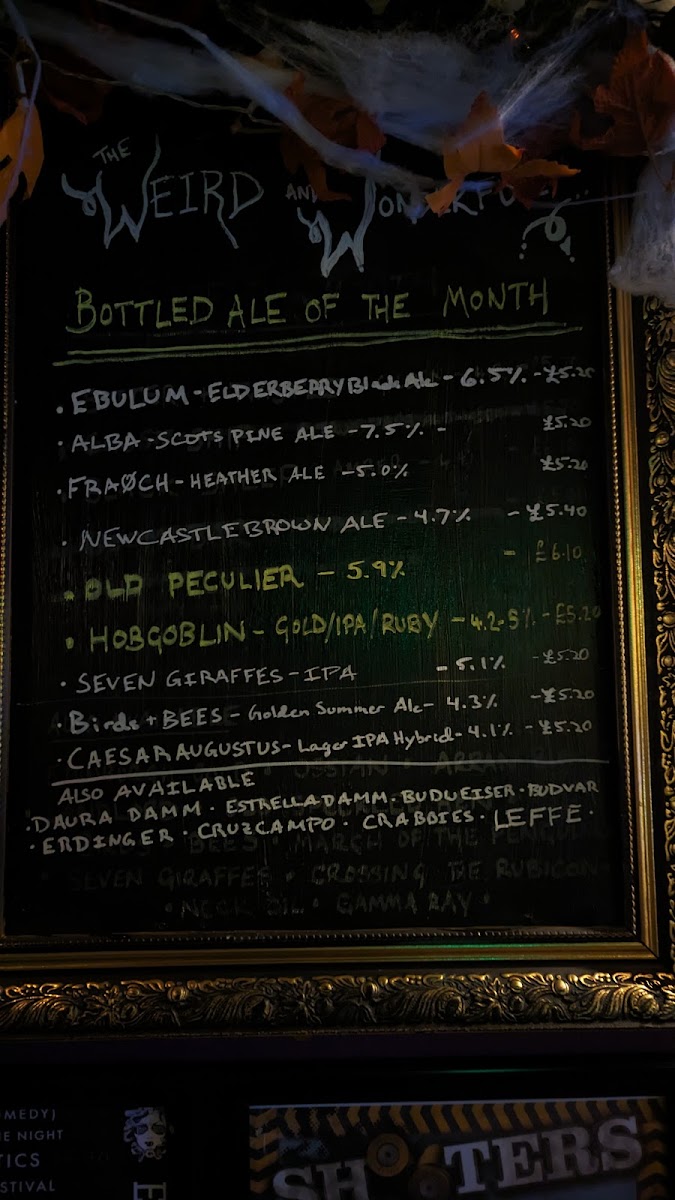 THE
WEIRD AND WONDERFU
BOTTLED ALE OF THE MONTH
· EBULUM - ELDERBERRY Black Ale - 6.5% - £5.20
· ALBA - SCOTS PINE ALE - 7.5% - £5.20
· FRAØCH - HEATHER ALE - 5.0% £5.20
· NEWCASTLE BROWN ALE - 4.7% - £5.40
· OLD PECULIER - 5.9% - £6.10
· HOBGOBLIN - GOLD/IPA/RUBY - 4.2-5% - £5.20
· SEVEN GIRAFFES - IPA - 5.1% - £5.20
· Birds + BEES - Golden Summer Ale - 4.3% - £5.20
· CAESAR AUGUSTUS - Lager IPA Hybrid - 4.1% - £5.20
ALSO AVAILABLE
· DAURA DAMM · ESTRELLA DAMM · BUDWEISER · BUDVAR
· ERDINGER · CRUZCAMPO · CRABBIES · LEFFE ·
BEES · MARCH OF THE PENGUIN
SEVEN GIRAFFES · CROSSING THE RUBICON
· NECK OIL · GAMMA RAY ·
OMEDY
E NIGHT
TICS
STIVAL
SHOOTERS